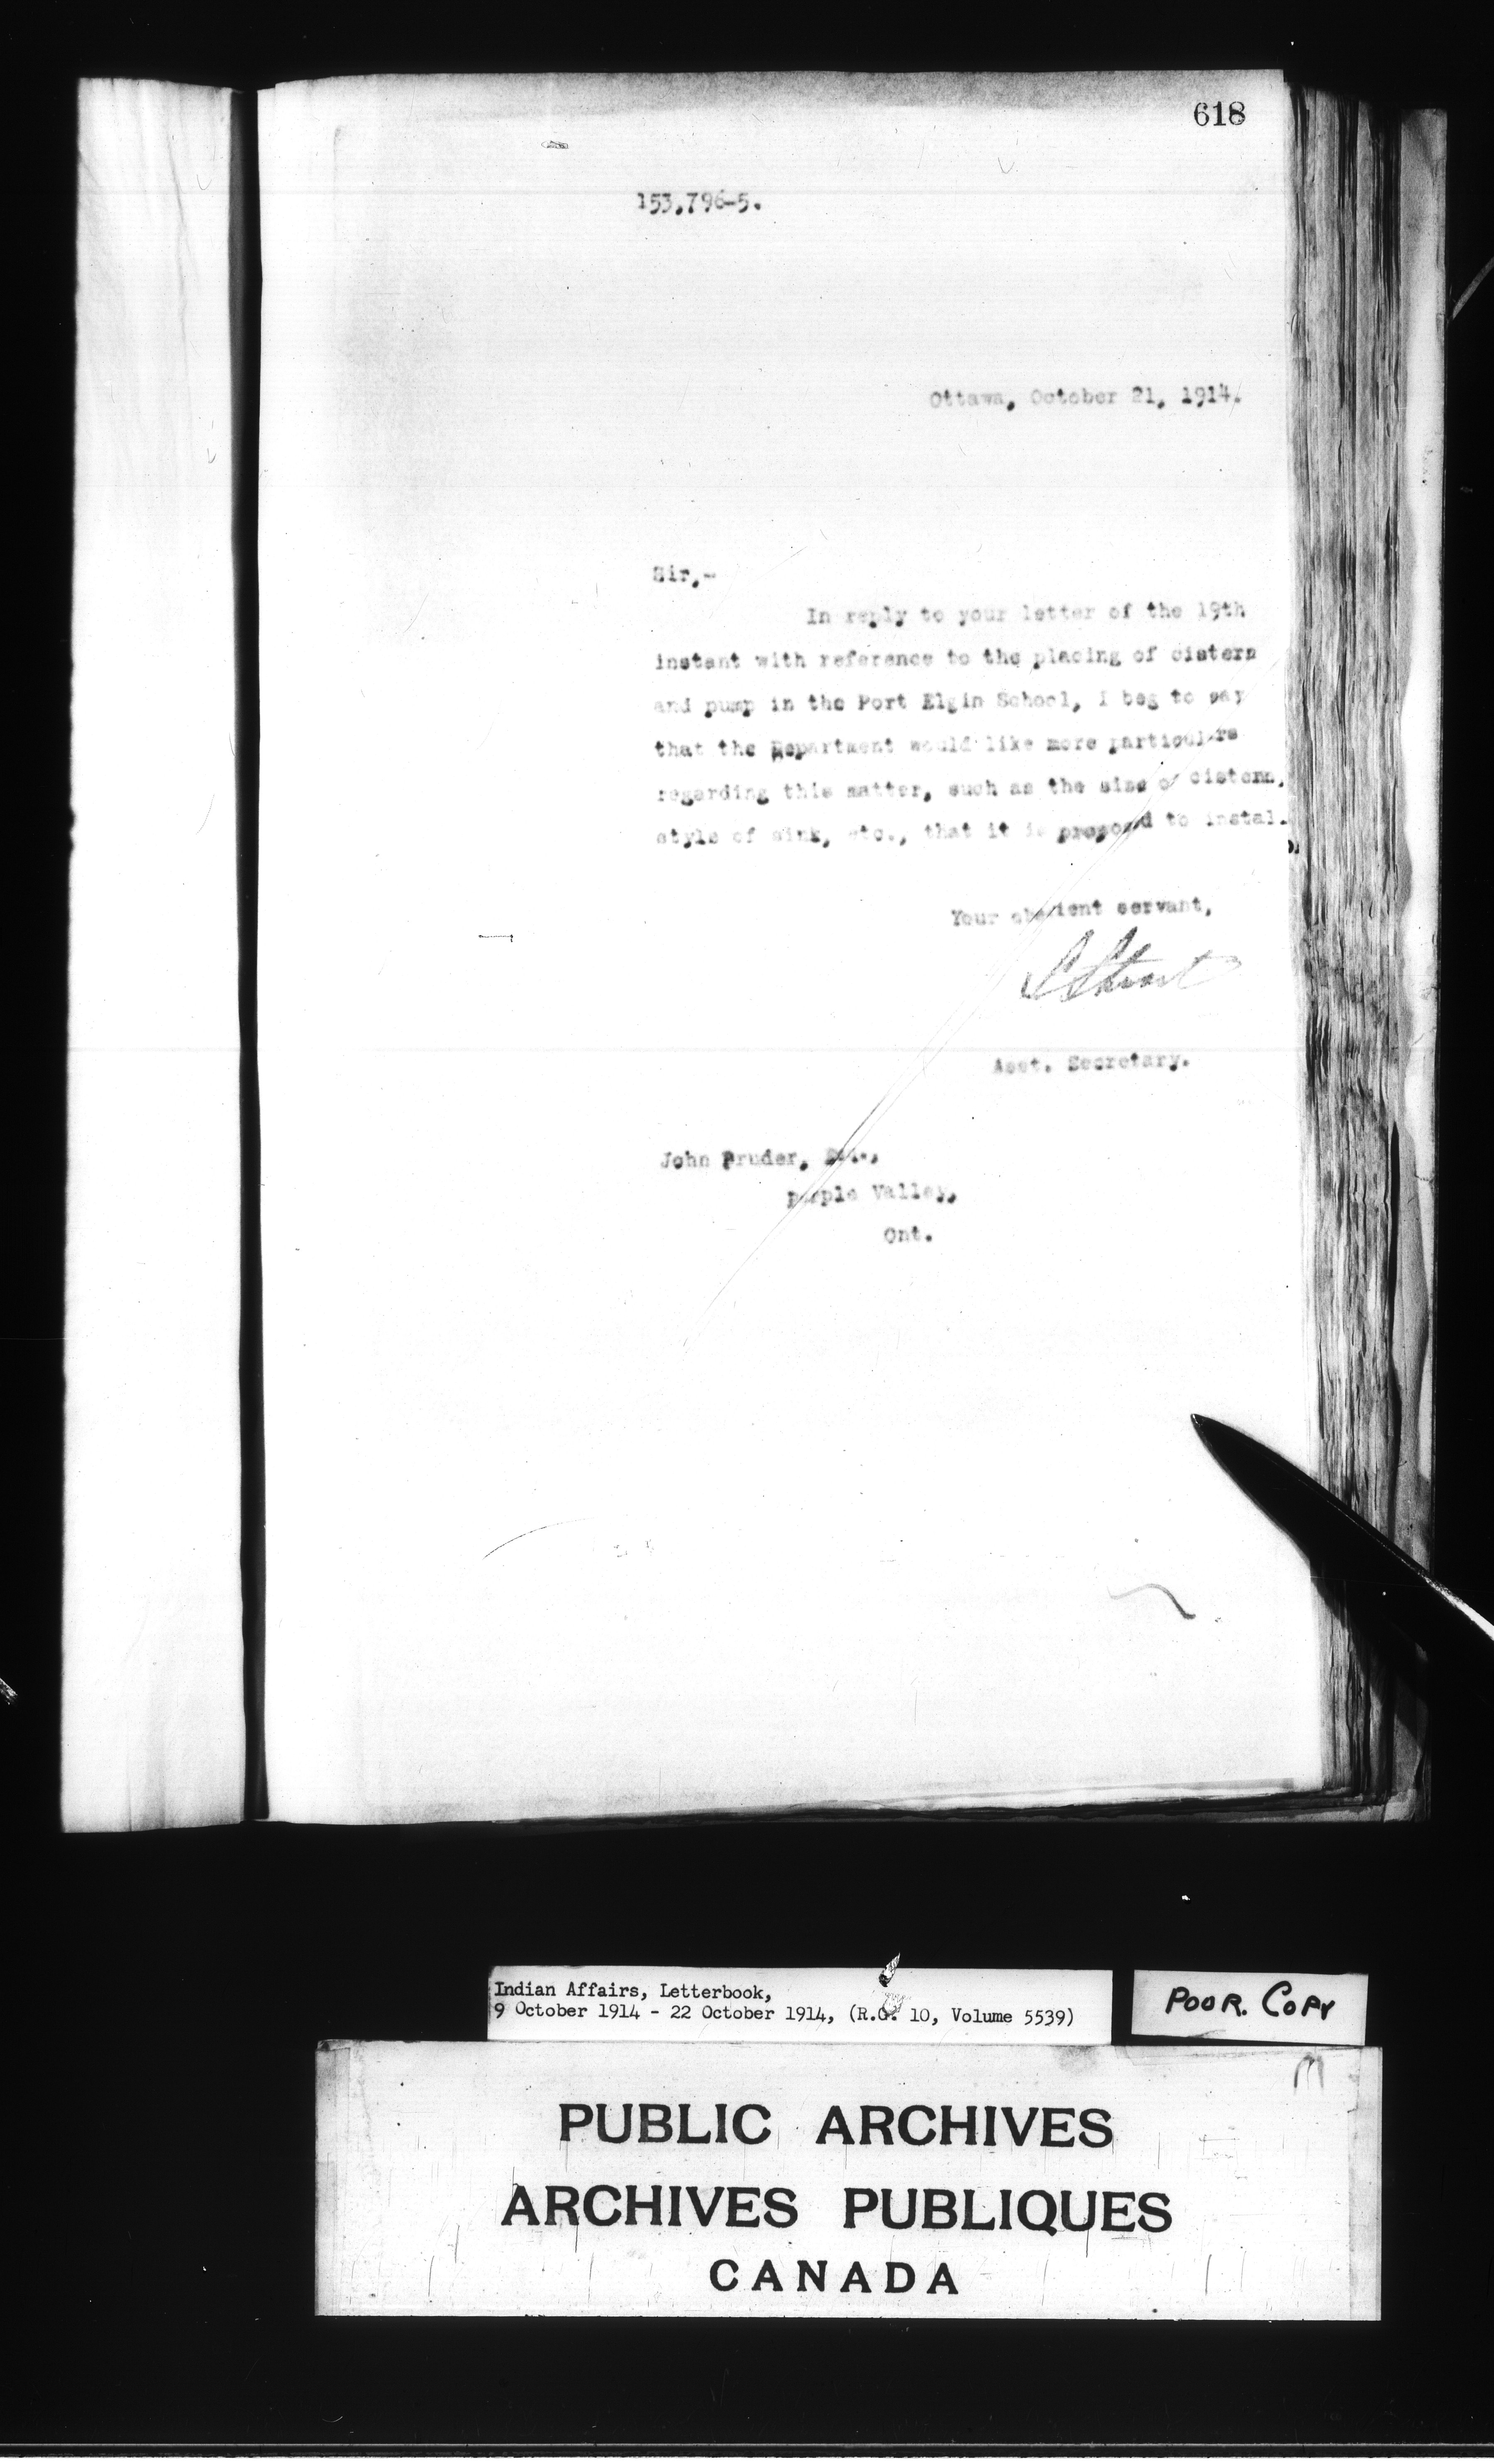 618
153,796-5.
Ottawa, October 21, 1914.
Sir,-
In reply to your letter of the 19th
instant with reference to the placing of cistern
and pump in the Port Elgin School, I beg to say
that the Department would like more particulars
regarding this matter, such as the size of cistern,
style of sink, etc., that it is proposed to instal.
Your obedient servant,
Stewart
Asst. Secretary.
John Pruder, Esq.,
Purple Valley,
Ont.
Indian Affairs, Letterbook,
9 October 1914 - 22 October 1914, (R.G. 10, Volume 5539)
POOR. COPY
PUBLIC ARCHIVES
ARCHIVES PUBLIQUES
CANADA